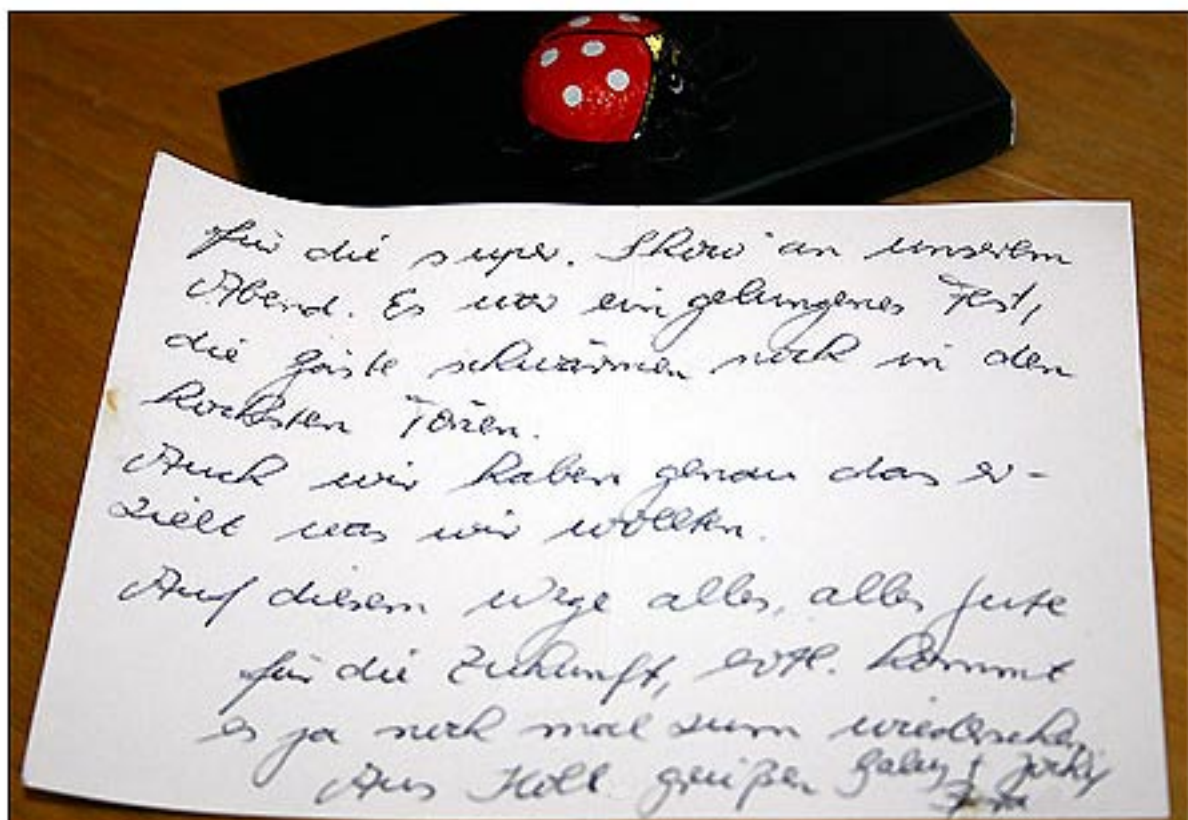 für die super. Show an unserem
Abend. Es war ein gelungenes Fest,
die Gäste schwärmen noch in den
höchsten Tönen.
Auch wir haben genau das er-
zielt was wir wollten.
Auf diesem Wege alles, alles Gute
für die Zukunft, evtl. kommt
es ja noch mal zum wiedersehen,
Aus grüßen